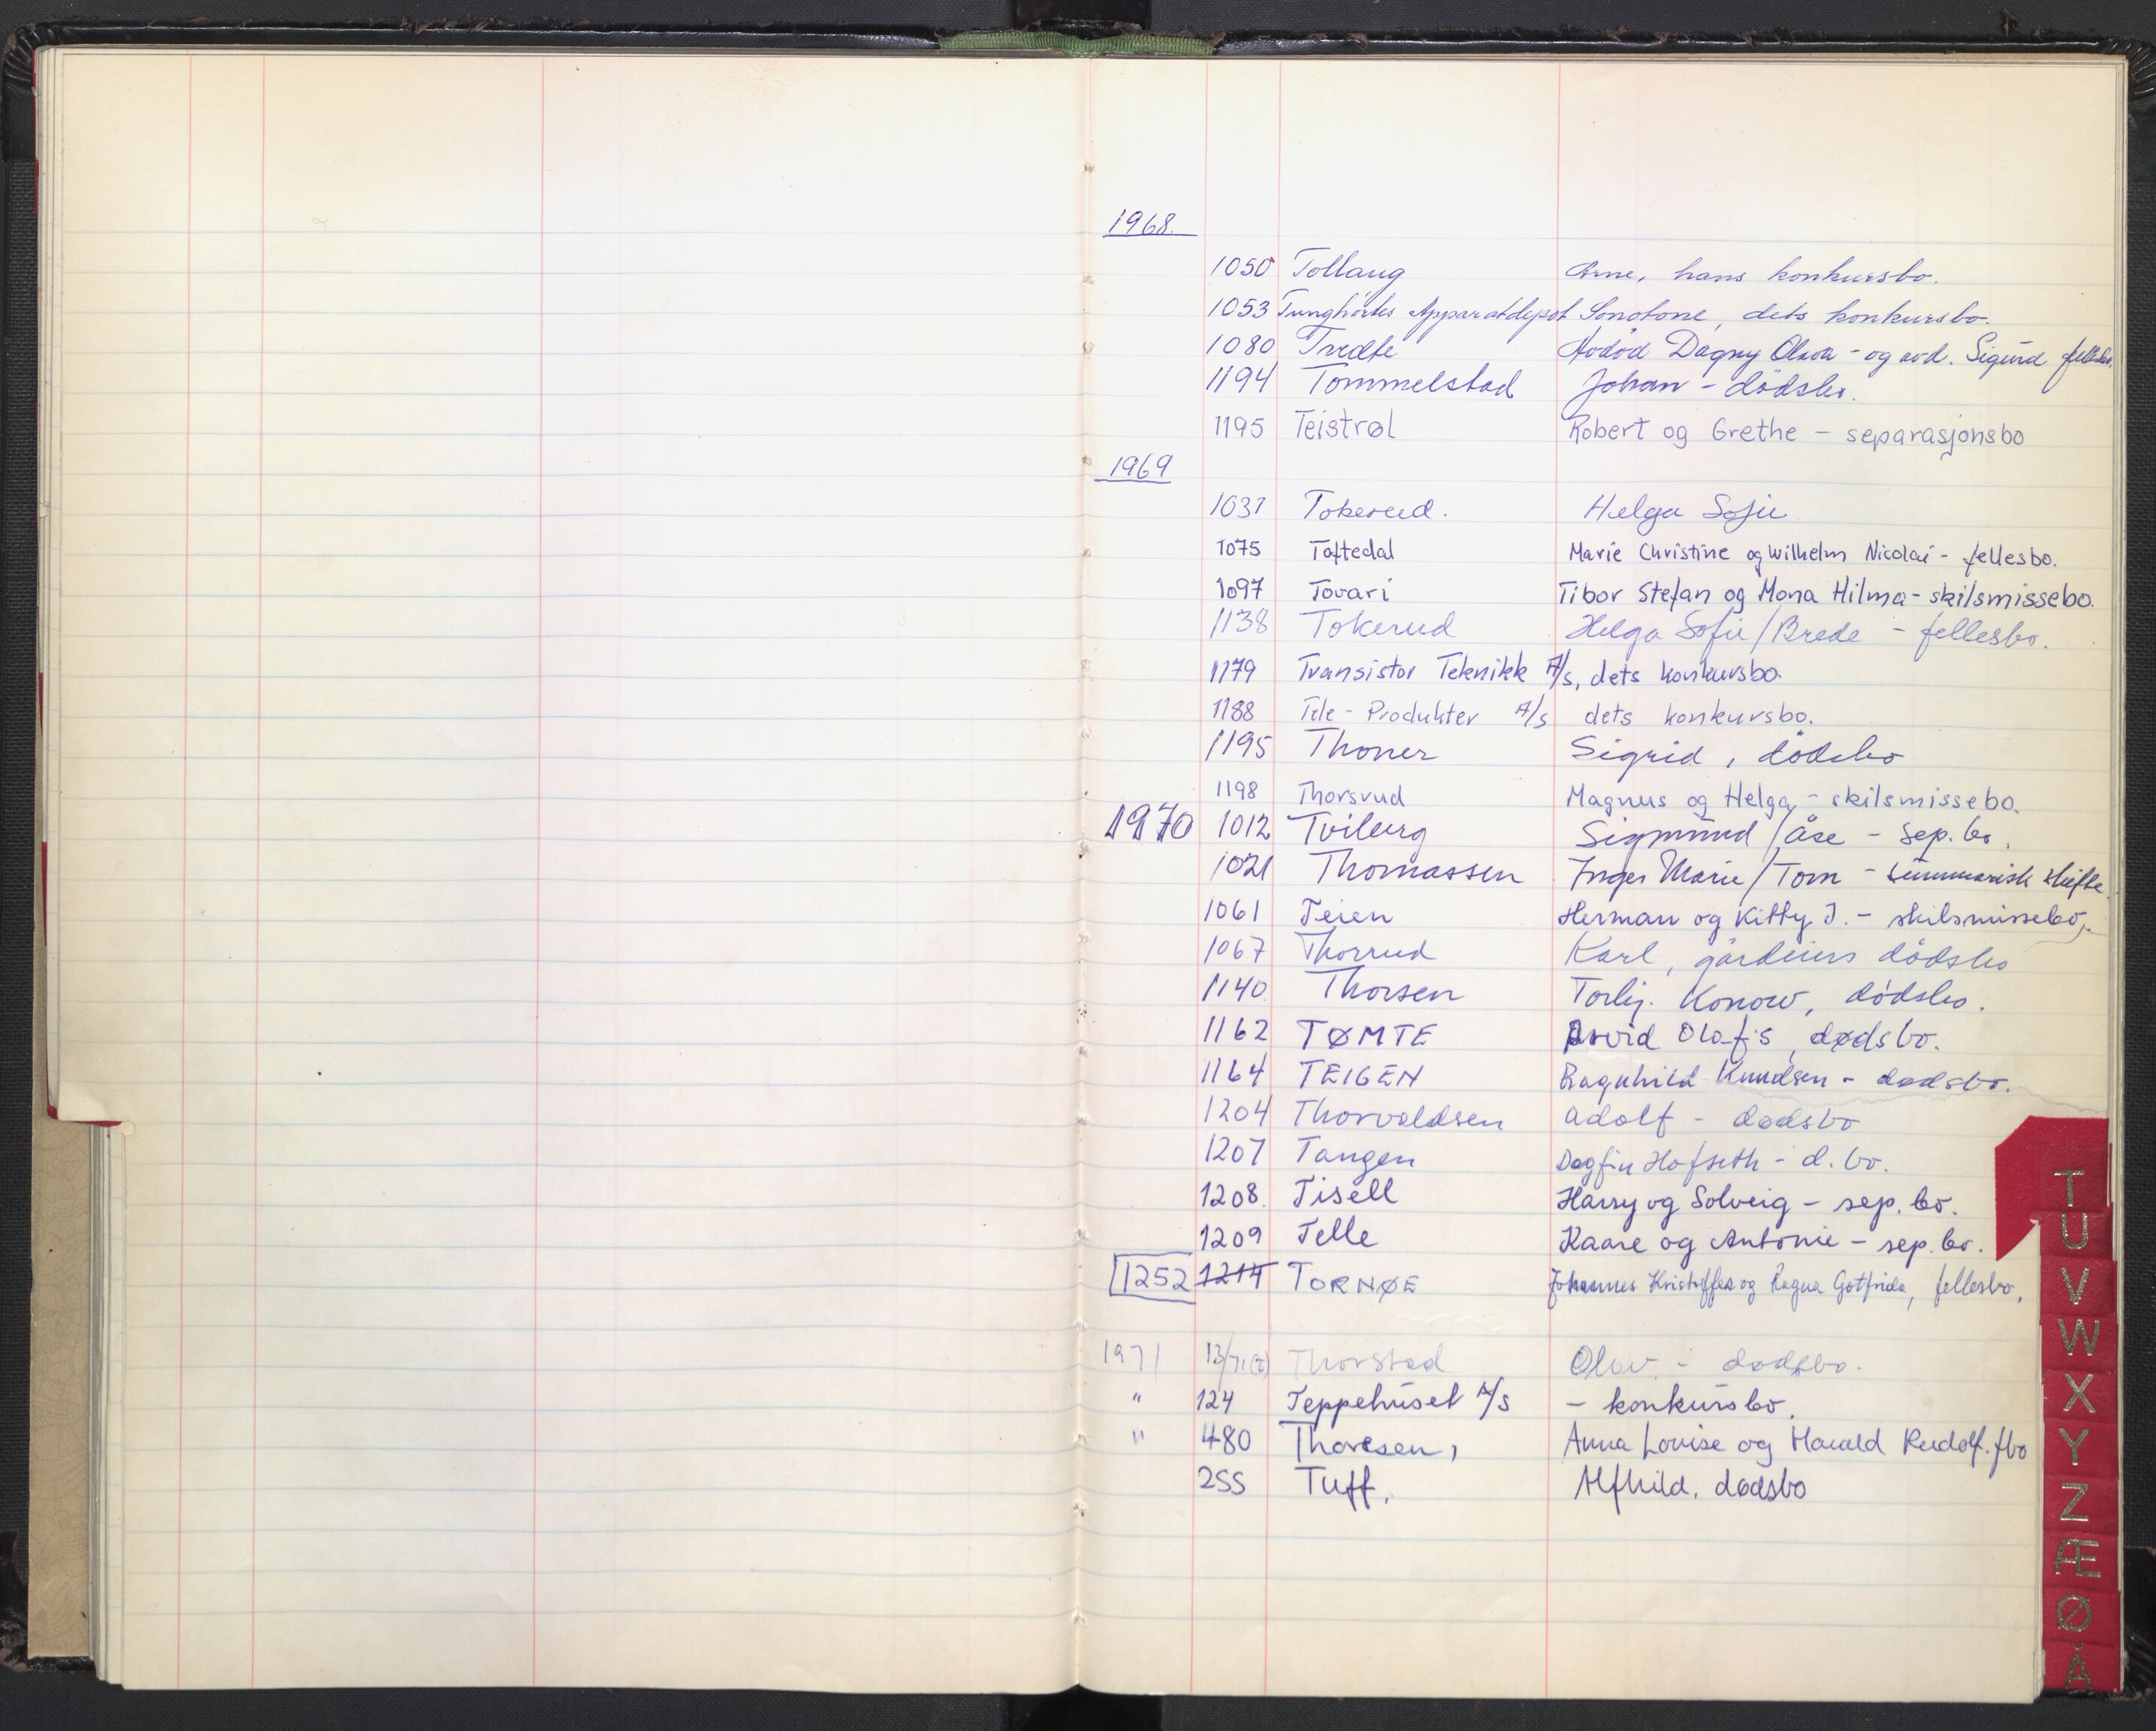 1968.
1050 Tollaug Arne, hans konkursbo.
1053 Tunghørtes Apparatdepot Sonotone, dets konkursbo.
1080 Tvedte Dagny Olava - og avd. Sigurd fellesbo.
1194 Tommelstad Johan - dödsbo.
1195 Teistrøl Robert og Grethe - separasjonsbo
1969
1037 Tokerud. Helga Sofie
1075 Toftedal Marie Christine og Wilhelm Nicolai - fellesbo.
1097 Tovari Tibor Stefan og Mona Hilma - skilsmissebo.
1138 Tokerud Helga Sofie/Brede - fellesbo.
1179 Transistor Teknikk A/s, dets konkursbo.
1188 Tele-Produkter A/s dets konkursbo.
1195 Thoner Sigrid, dödsbo
1198 Thorsrud Magnus og Helga - skilsmissebo.
1970 1012 Tviberg Sigmund/Åse - sep. bo.
1021 Thomassen Inger Marie/Tom - summarisk skifte
1061 Teien Herman og Kitty J. - skilsmissebo.
1067 Thorrud Karl, gårdeiers dödsbo
1140 Thorsen Torbj. Konow, dödsbo.
1162 TØMTE Arvid Olafs, dødsbo.
1164 TEIGEN Ragnhild Knudsen - dødsbo.
1204 Thorvaldsen Adolf - dødsbo
1207 Tangen Dagfin Hofseth - d. bo.
1208. Tisell Harry og Solveig - sep. bo.
1209 Telle Kaare og Antonie - sep. bo.
1252 1214 TORNØE Johannes Kristoffer og Ragna Gotfrida, fellesbo.
1971 13/71(B) Thorstad Olav - dødsbo.
" 124 Teppehuset A/s - konkursbo.
" 480 Thoresen, Anna Lovise og Harald Rudolf. fbo
255 Tuff, Alfhild. dødsbo
T
U
V
W
X
Y
Z
Æ
Ø
Å